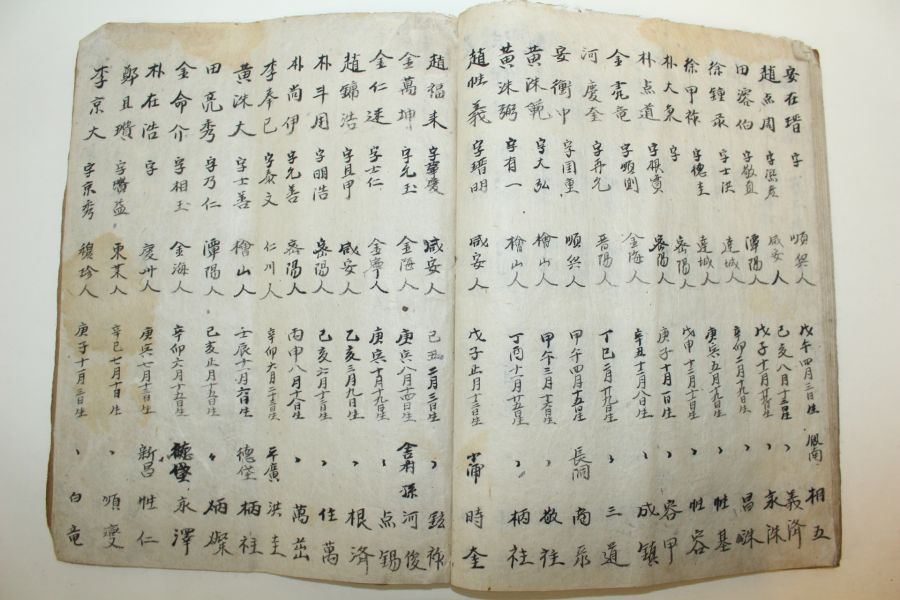 安在瑨 字 順興人 戊午四月三日生 鳳南 相五
趙点周 字 咸安人 己亥八月十四日生 〃 義済
田溶伯 字敬直 潭陽人 戊子十二月 日生 〃 永洙
徐鍾录 字士洪 達城人 辛卯二月十九日生 〃 昌洙
徐甲祚 字德圭 達城人 庚寅五月十一日生 〃 性基
朴大臭 字 密陽人 戊申十二月十一日生 〃 性容
朴点道 字 密陽人 庚子十月一日生 〃 容甲
金亮竜 字順則 金海人 辛丑十二月八日生 〃 成鎮
河慶金 字丹元 晋陽人 丁巳二月十九日生 〃 三道
安衡中 字国重 順興人 甲午四月十五日生 長洞 商录
黃洙範 字大弘 檜山人 甲午三月十六日生 〃 敬柱
黃洙弼 字有一 檜山人 丁丙十一月廿五日生 〃 柄柱
趙性義 字瑨明 咸安人 戊子正月十三日生 小浦 時奎
趙福來 字肇慶 咸安人 己丑二月三日生 〃 鉉祚
金萬坤 字允玉 金海人 庚寅八月四日生 舍村 孫河俊
金仁達 字士仁 金寧人 庚寅十月十九日生 〃 点錫
趙鏞浩 字且甲 咸安人 乙亥三月九日生 〃 根済
朴斗用 字明浩 密陽人 己亥六月十三日生 〃 住萬
朴尚伊 字允善 密陽人 丙申八月十八日生 〃 萬茁
李奉己 字泰文 仁川人 辛卯六月二十三日生 平廣 洪圭
黃洙大 字士善 檜山人 壬辰十一月六日生 德堡 柄柱
田亮秀 字乃仁 潭陽人 己亥正月十五日生 〃 炳璨
金命介 字相玉 金海人 辛卯六月十五日生 德堡 永澤
朴在浩 字 慶州人 庚寅七月十三日生 新昌 性仁
鄭且瓚 字 益 東萊人 辛巳七月十日生 〃 順燮
李京大 字京秀 積珍人 庚子十一月三日生 〃 白竜